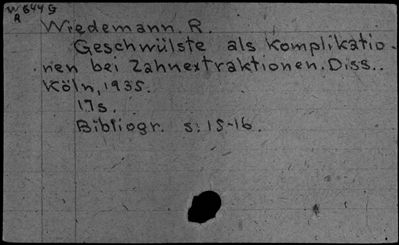 W 644 G
R
Wiedemann. R.
Geschwülste als Komplikatio-
nen bei Zahnextraktionen. Diss..
Köln, 1935.
17s.
Bibliogr. s: 15-16.